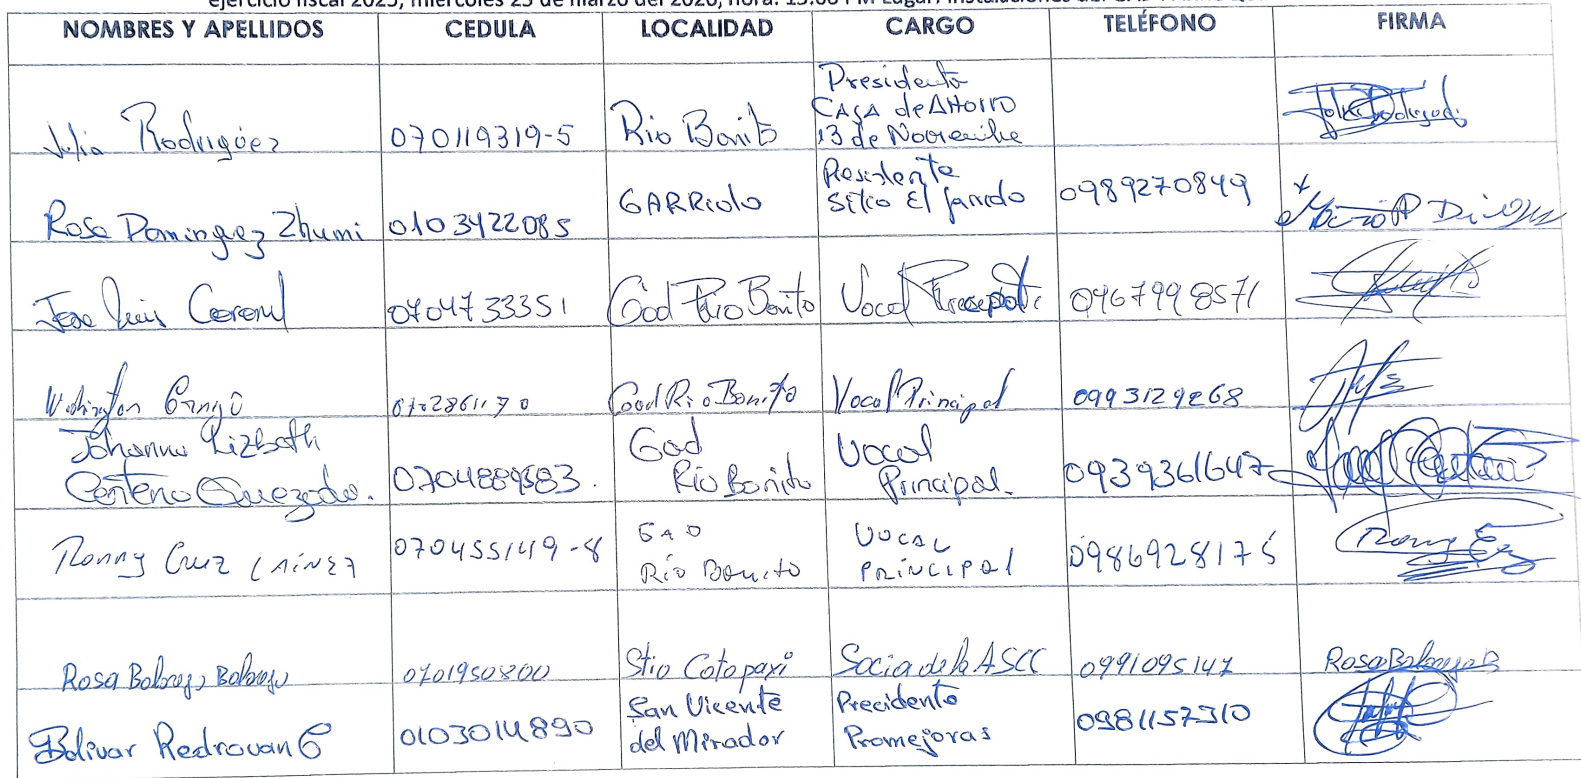 NOMBRES Y APELLIDOS CEDULA LOCALIDAD CARGO TELÉFONO FIRMA
Julia Rodriguez 070119319-5 Rio Bonito Presidenta
CAJA de AHorro
13 de Noviembre
Rosa Dominguez Zhumi 0103422085 GARRido Presidente
Sitio El Garrido 0989270849
Jose Luis 0704733351 Gad Rio Bonito Vocal 0967998571
Washington 0702861170 Gad Rio Bonito Vocal Principal 0993129268
Johanna Lizbeth
Centeno Quezada. 0704889583. Gad
Río Bonito Vocal
Principal. 0939361647
Ronny Cruz LAiNEZ 070455149-8 GAD
Río Bonito VOCAL
PRINCIPAL 0986928175
Rosa 0701950800 Stio Cotopaxi Socia de la ASCC 0991095147
Bolivar Redrovan G 0103014890 San Vicente
del Mirador Precidente
Promejoras 0981157310